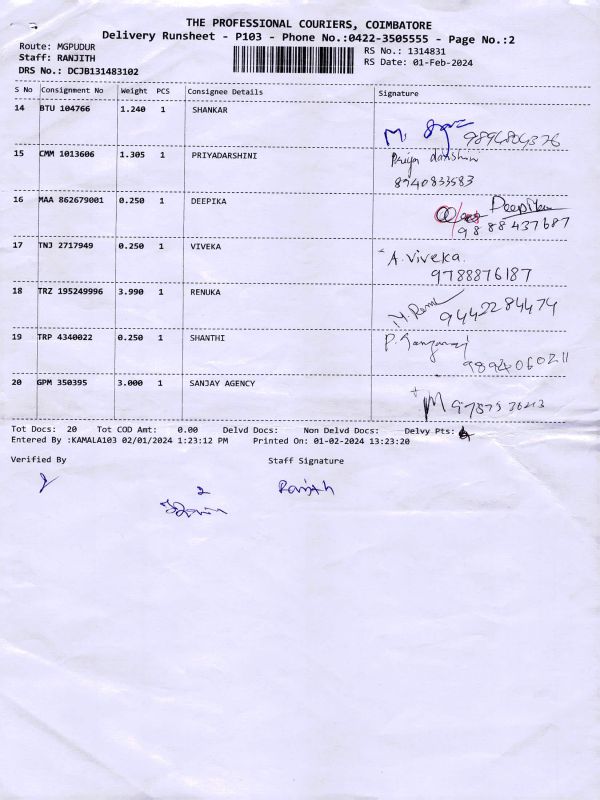 THE PROFESSIONAL COURIERS, COIMBATORE
Delivery Runsheet - P103 - Phone No.:0422-3505555 - Page No.:2
Route: MGPUDUR
RS No.: 1314831
Staff: RANJITH
RS Date: 01-Feb-2024
DRS No.: DCJB131483102
S No Consignment No Weight PCS Consignee Details Signature
14 BTU 104766 1.240 1 SHANKAR
M. 9894804376
15 CMM 1013606 1.305 1 PRIYADARSHINI
Priya darshini
8940833583
16 MAA 862679001 0.250 1 DEEPIKA
Deepika
9888437687
17 TNJ 2717949 0.250 1 VIVEKA
A. Viveka.
9788876187
18 TRZ 195249996 3.990 1 RENUKA
9442284474
19 TRP 4340022 0.250 1 SHANTHI
9894060211
20 GPM 350395 3.000 1 SANJAY AGENCY
Tot Docs: 20 Tot COD Amt: 0.00 Delvd Docs: Non Delvd Docs: Delvy Pts:
Entered By :KAMALA103 02/01/2024 1:23:12 PM Printed On: 01-02-2024 13:23:20
Verified By Staff Signature
Ranjith